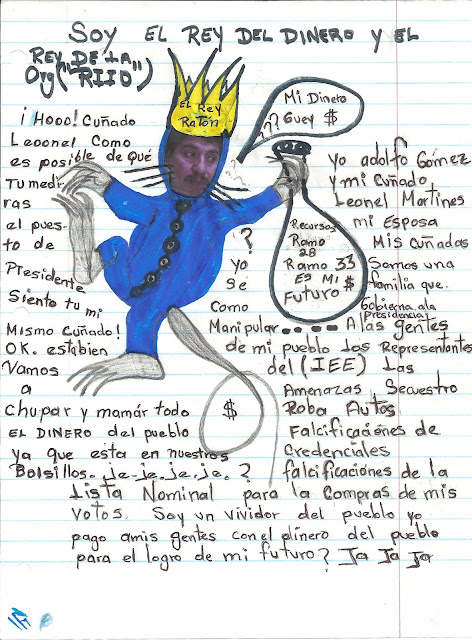 SOY EL REY DEL DINERO Y EL
REY "DE LA"
Org("RIIO")
EL REY
RATÓN
Mi Dinero
Guey $
??
¡Hooo! Cuñado
Leoonel Como
es posible de Qué
Tu medi
ras
el pues-
to de
Presidente
Siento tu mi
Mismo Cuñado!
OK. estabien
Vamos
a
chupar y mamár todo
EL DINERO del pueblo
ya que esta en nuestros
Bolsillos. je-je.je.je. ?
Recursos
Ramo
28
Ramo 33
ES MI $
FUTURO
$
Yo adolfo Gómez
y mi Cuñado
Leonel Martines
mi Esposa
? Mis Cuñados
Yo Somos una
Se familia que.
Como Gobierna ala
Presidencia!
Manipular ---- A las gentes
de mi pueblo Los Representantes
del (IEE) Las
Amenazas Secuestro
Roba Autos
Falcificaciónes de
Credenciales
falcificaciones de la
Lista Nominal para la Compras de mis
votos. Soy un vividor del pueblo yo
pago amis gentes con el dinero del pueblo
para el logro de mi futuro? Ja Ja Ja